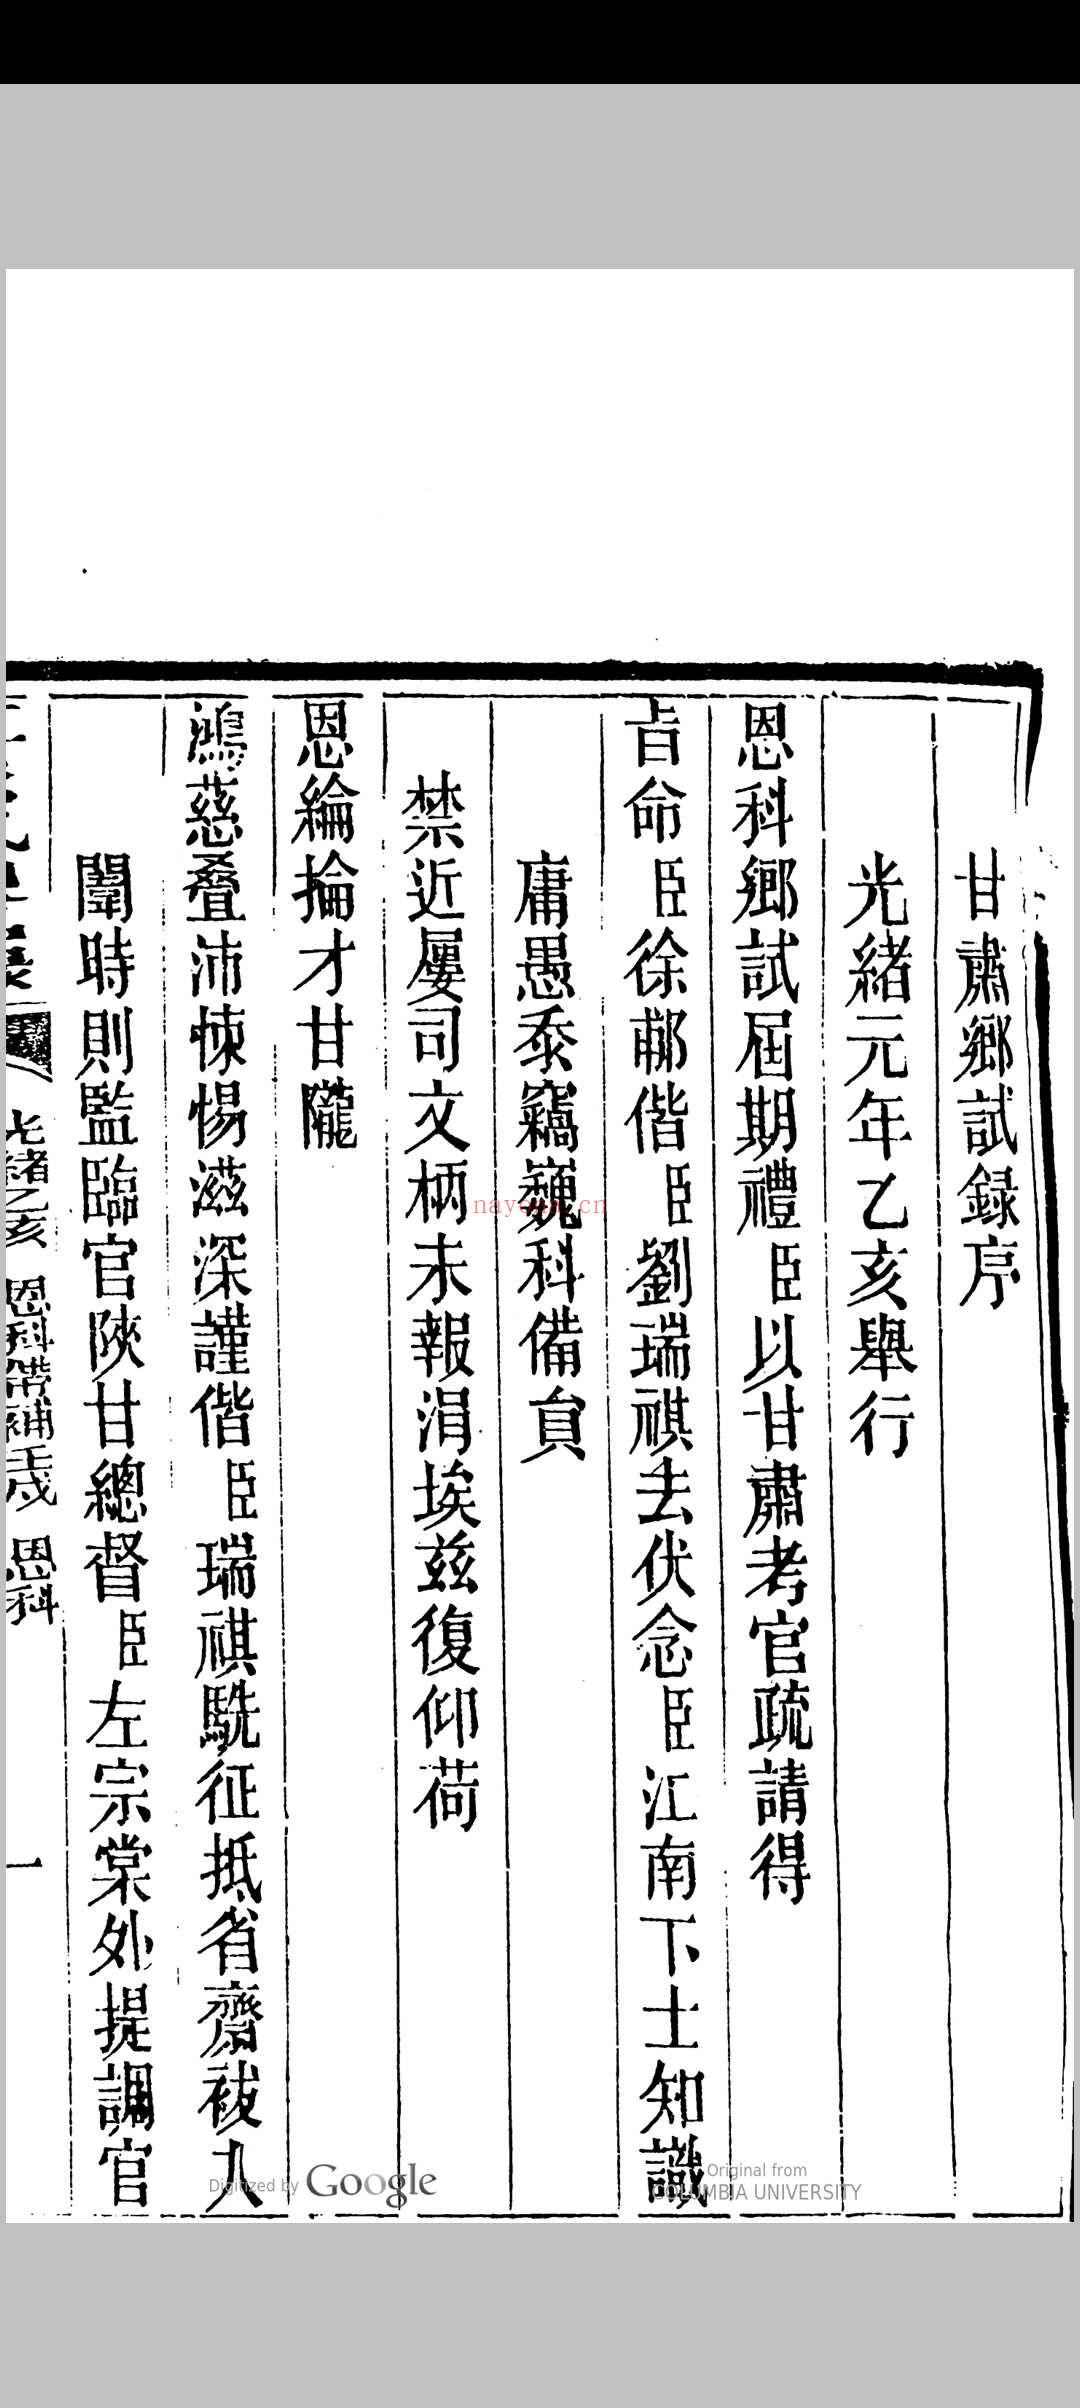 甘肅鄉試録序
光緒元年乙亥舉行
恩科鄉試屆期禮臣以甘肅考官疏請得
旨命臣徐郙偕臣劉瑞祺去伏念臣江南下士知識
庸愚忝竊巍科備員
禁近屢司文柄未報涓埃兹復仰荷
恩綸掄才甘隴
鴻慈叠沛悚惕滋深謹偕臣瑞祺駪征抵省齋祓入
闈時則監臨官陝甘總督臣左宗棠外提調官
光緒乙亥 恩科帶補壬戌 恩科
一
nayona.cn
Digitized by Google
Original from
COLUMBIA UNIVERSITY